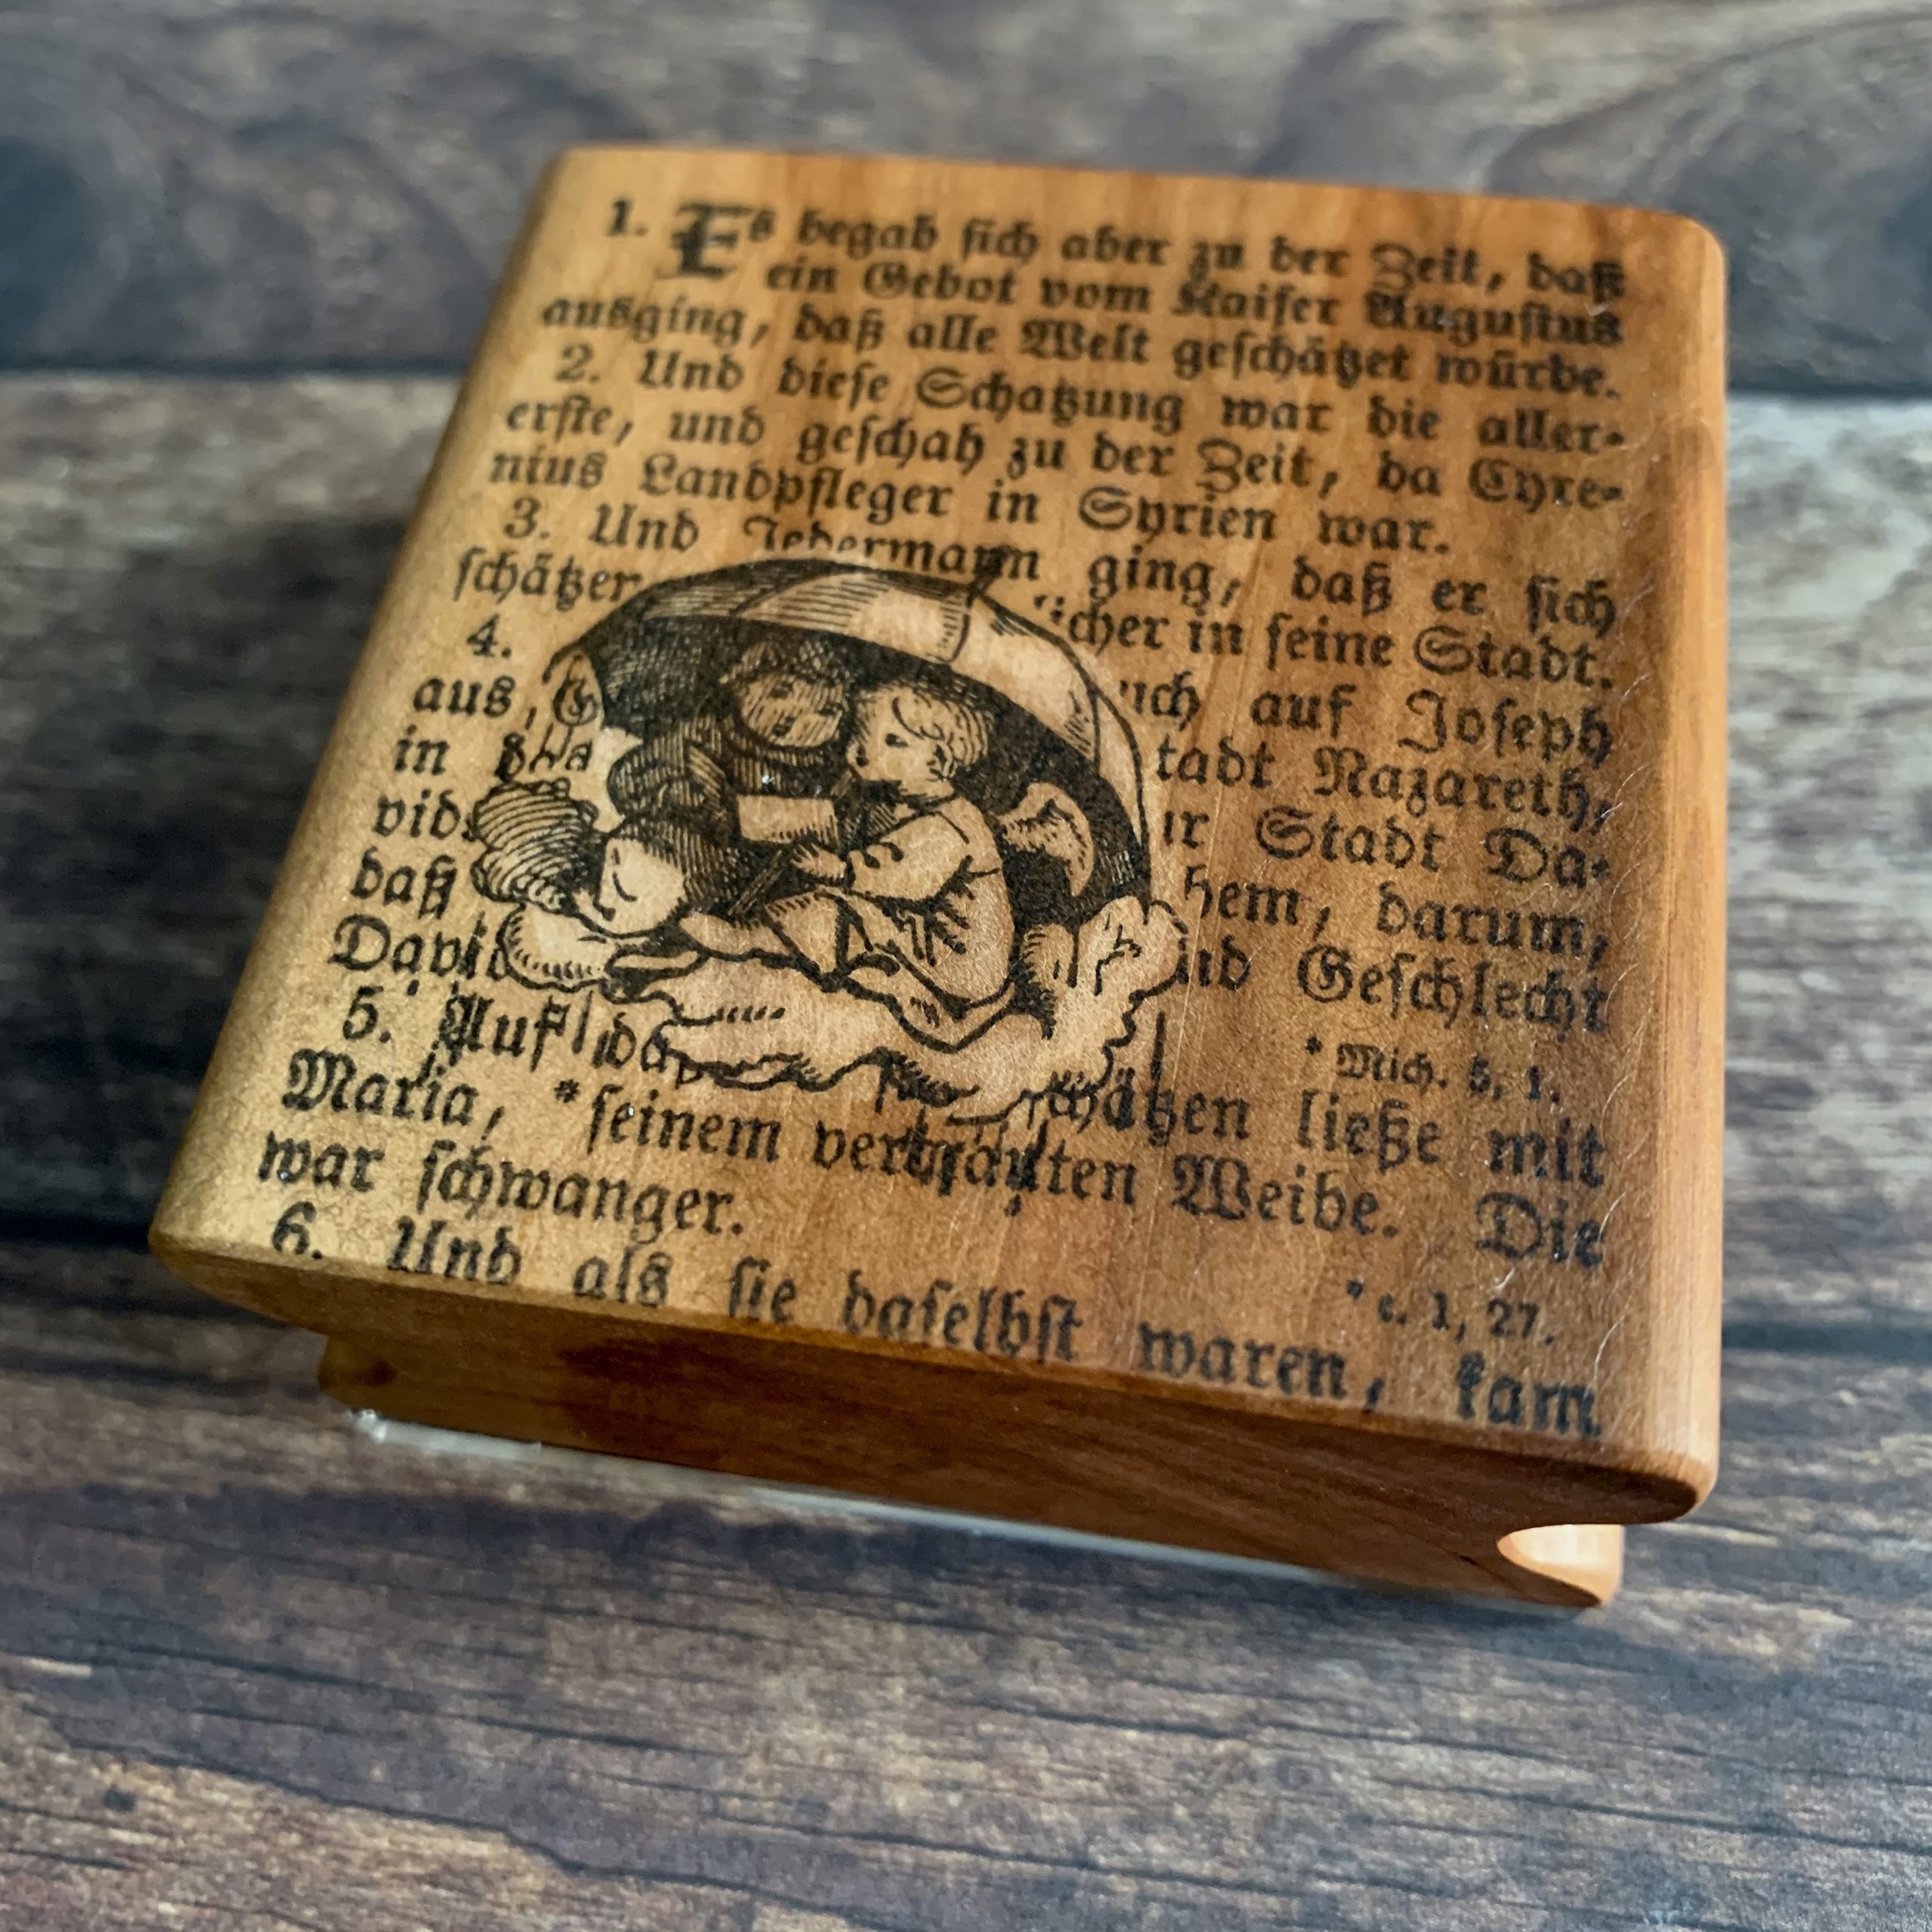 1. Es begab sich aber zu der Zeit, daß
ein Gebot vom Kaiser Augustus
ausging, daß alle Welt geschätzet würde.
2. Und diese Schatzung war die aller-
erste, und geschah zu der Zeit, da Cyre-
nius Landpfleger in Syrien war.
3. Und Jedermann ging, daß er sich
in seine Stadt.
4. auf Joseph
aus, Nazareth,
in Stadt Da-
darum,
daß Geschlecht
David
* Mich. 5, 1.
5. Auf schätzen ließe mit
Maria, *seinem vertrauten Weibe. Die
war schwanger.
* c. 1, 27.
6. Und als sie daselbst waren, kam